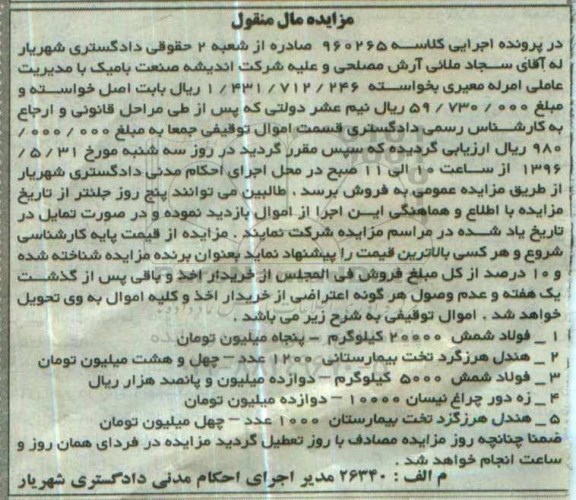 مزایده مال منقول
در پرونده اجرایی کلاسه ۹۶۰۲۶۵ صادره از شعبه ۲ حقوقی دادگستری شهریار
له آقای سجاد ملائی آرش مصلحی و علیه شرکت اندیشه صنعت بامیک با مدیریت
عاملی امرله معیری بخواسته ۱/۴۳۱/۷۱۲/۲۴۶ ریال بابت اصل خواسته و
مبلغ ۵۹/۷۳۰/۰۰۰ ریال نیم عشر دولتی که پس از طی مراحل قانونی و ارجاع
به کارشناس رسمی دادگستری قسمت اموال توقیفی جمعا به مبلغ ۰۰۰/۰۰۰/
۹۸۰ ریال ارزیابی گردیده که سپس مقرر گردید در روز سه شنبه مورخ ۵/۳۱/
۱۳۹۶ از ساعت ۱۰ الی ۱۱ صبح در محل اجرای احکام مدنی دادگستری شهریار
از طریق مزایده عمومی به فروش برسد . طالبین می توانند پنج روز جلنتر از تاریخ
مزایده با اطلاع و هماهنگی این اجرا از اموال بازدید نموده و در صورت تمایل در
تاریخ یاد شده در مراسم مزایده شرکت نمایند . مزایده از قیمت پایه کارشناسی
شروع و هر کسی بالاترین قیمت را پیشنهاد نماید بعنوان برنده مزایده شناخته شده
و ۱۰ درصد از کل مبلغ فروش فی المجلس از خریدار اخذ و باقی پس از گذشت
یک هفته و عدم وصول هر گونه اعتراضی از خریدار اخذ و کلیه اموال به وی تحویل
خواهد شد . اموال توقیفی به شرح زیر می باشد .
۱ _ فولاد شمش ۲۰۰۰۰ کیلوگرم – پنجاه میلیون تومان
۲ _ هندل هرزگرد تخت بیمارستانی ۱۲۰۰ عدد – چهل و هشت میلیون تومان
۳ _ فولاد شمش ۵۰۰۰ کیلوگرم – دوازده میلیون و پانصد هزار ریال
۴ _ زه دور چراغ نیسان ۱۰۰۰۰ – دوازده میلیون تومان
۵ _ هندل هرزگزد تخت بیمارستان ۱۰۰۰ عدد – چهل میلیون تومان
ضمنا چنانچه روز مزایده مصادف با روز تعطیل گردید مزایده در فردای همان روز و
ساعت انجام خواهد شد .
م الف : ۲۶۳۴۰ مدیر اجرای احکام مدنی دادگستری شهریار